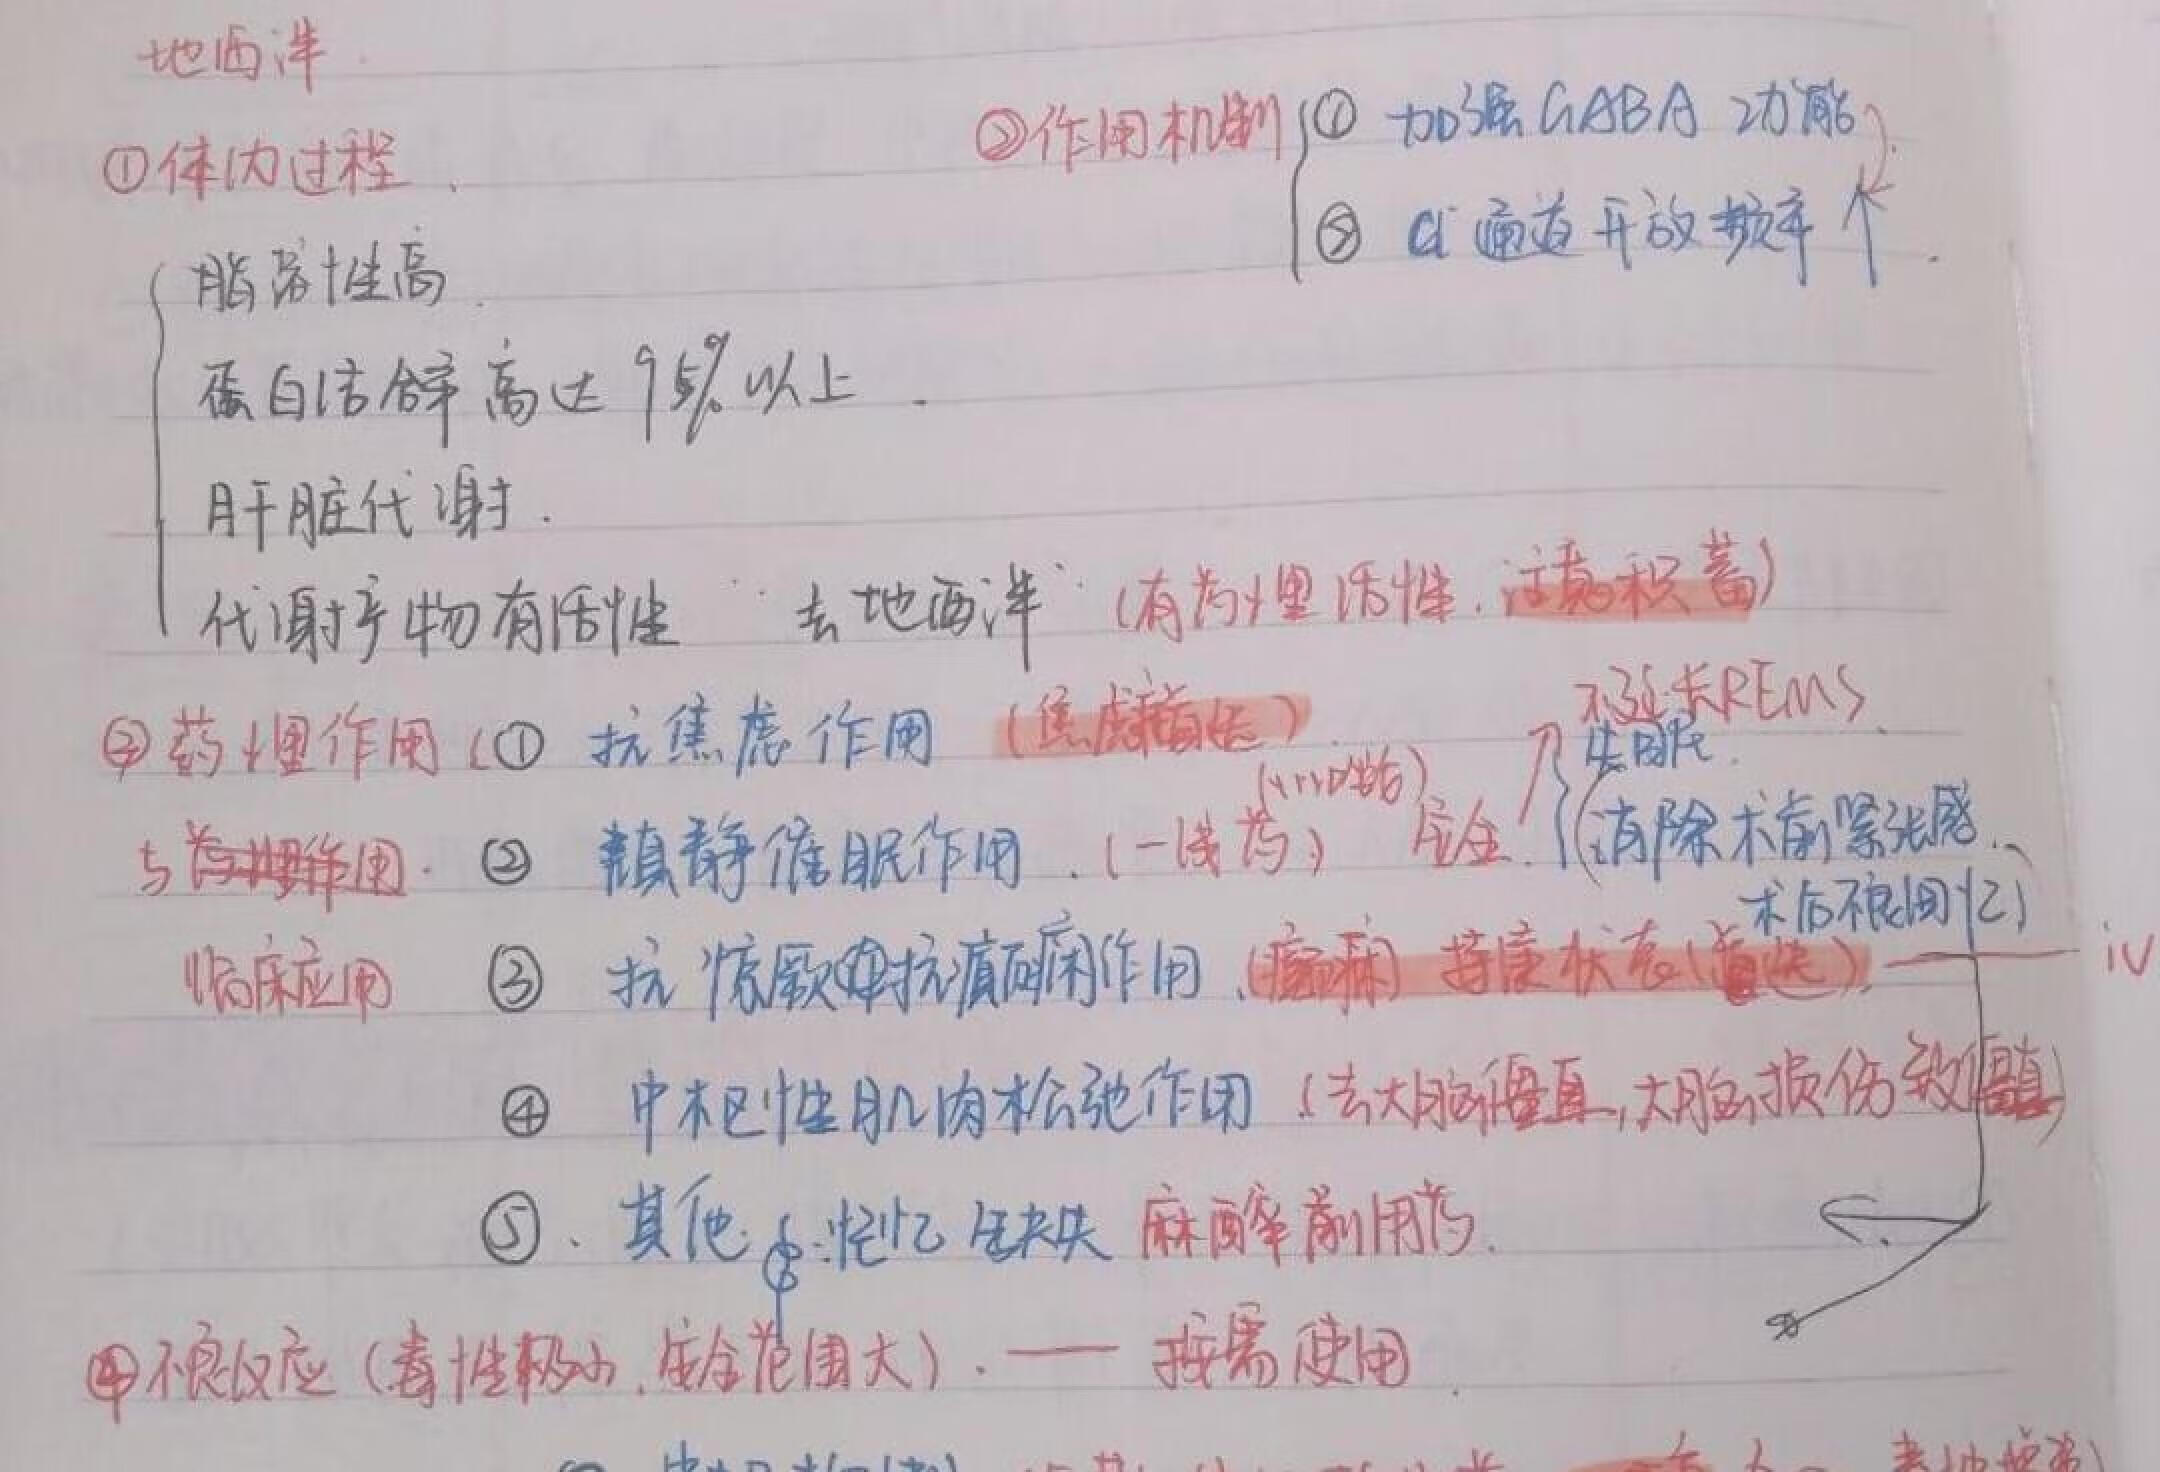 地西泮
①体内过程
②作用机制 ① 加强GABA功能
② Cl⁻通道开放频率↑
脂溶性高
蛋白结合率高达95%以上
肝脏代谢
代谢产物有活性 "去地西泮" (有药理活性,注意积蓄)
③药理作用 ① 抗焦虑作用 (焦虑首选)
不延长REMS
失眠
与 临床应用
② 镇静催眠作用 (一线药) 安全
(消除术前紧张感
术后不良回忆)
③ 抗惊厥抗癫痫作用 (癫痫)持续状态(首选) iv
④ 中枢性肌肉松弛作用 (去大脑僵直,大脑损伤致僵直)
⑤ 其他: 忆缺失 麻醉前用药
④不良反应(毒性极小,安全范围大) — 按需使用